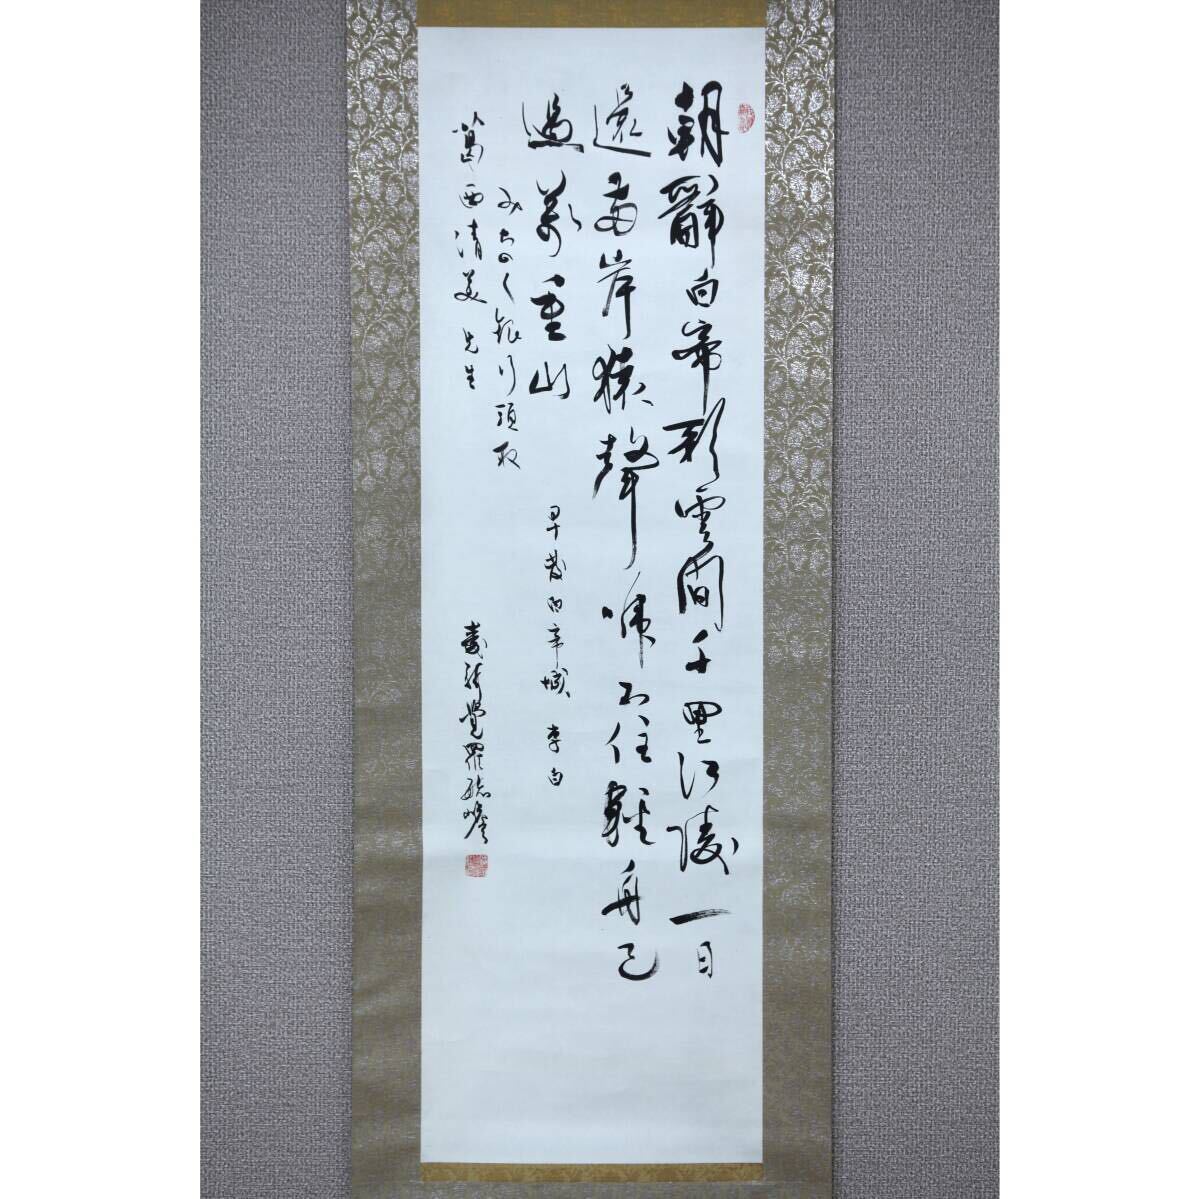 朝辭白帝彩雲間千里江陵一日
還兩岸猿聲啼不住輕舟已
過萬重山
早發白帝城 李白
みちのく銀行頭取
葛西清美先生
愛新覺羅毓嶦